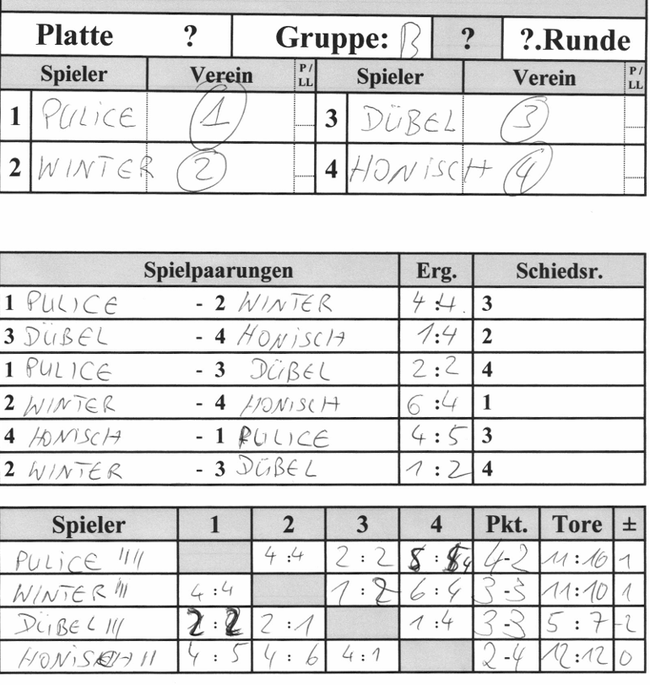 Platte ? Gruppe: B ? ?.Runde
Spieler Verein P/LL Spieler Verein P/LL
1 PULICE 1 3 DÜBEL 3
2 WINTER 2 4 HONISCH 4
Spielpaarungen Erg. Schiedsr.
1 PULICE - 2 WINTER 4:4 3
3 DÜBEL - 4 HONISCH 1:4 2
1 PULICE - 3 DÜBEL 2:2 4
2 WINTER - 4 HONISCH 6:4 1
4 HONISCH - 1 PULICE 4:5 3
2 WINTER - 3 DÜBEL 1:2 4
Spieler 1 2 3 4 Pkt. Tore ±
PULICE 4:4 2:2 4-2 11:10 1
WINTER 4:4 1:2 6:4 3-3 11:10 1
DÜBEL 2:2 2:1 1:4 3-3 5:7 -2
HONISCH 4:5 4:6 4:1 2-4 12:12 0